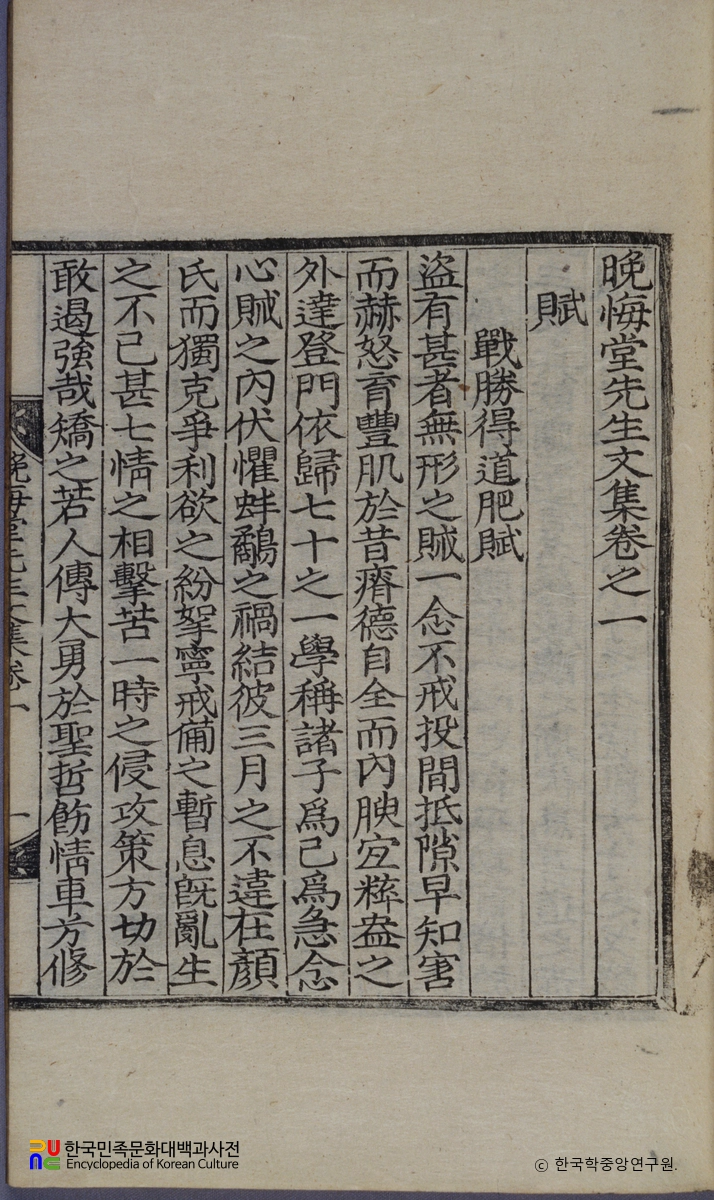 晩悔堂先生文集卷之一
賦
戰勝得道肥賦
盜有甚者無形之賊一念不戒投間抵隙早知害
而赫怒育豐肌於昔瘠德自全而內腴宜粹盎之
外達登門依歸七十之一學稱諸子爲己爲急念
心賊之內伏懼蚌鷸之禍結彼三月之不違在顔
氏而獨克爭利欲之紛挐寧戒備之暫息旣亂生
之不已甚七情之相擊苦一時之侵攻策方切於
敢遏強哉矯之若人傳大勇於聖哲飭情車方修
晩悔堂先生文集卷一
一
한국민족문화대백과사전
Encyclopedia of Korean Culture
ⓒ 한국학중앙연구원.